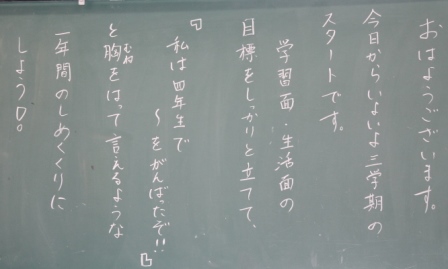 おはようございます。
今日からいよいよ三学期の
スタートです。
学習面・生活面の
目標をしっかりと立てて、
『私は四年生で
〜をがんばったぞ!!』
と胸をはって言えるような
むね
一年間のしめくくりに
しよう。